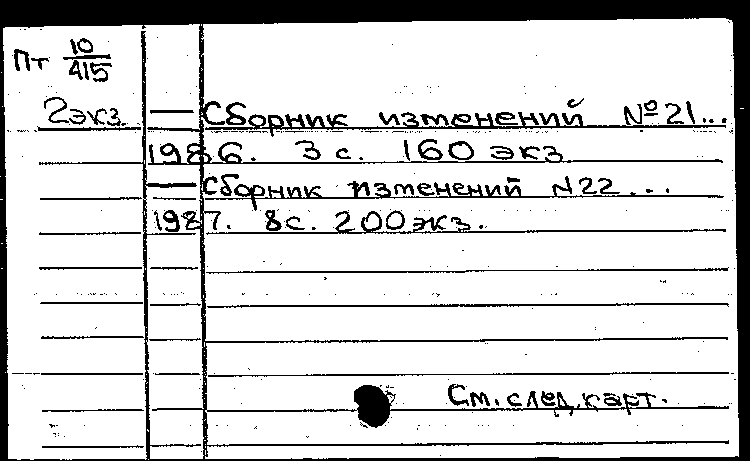 Пт 10/415
2экз — Сборник изменений №21...
1986. 3 с. 160 экз
— Сборник изменений N22...
1987. 8с. 200экз.
См. след. карт.